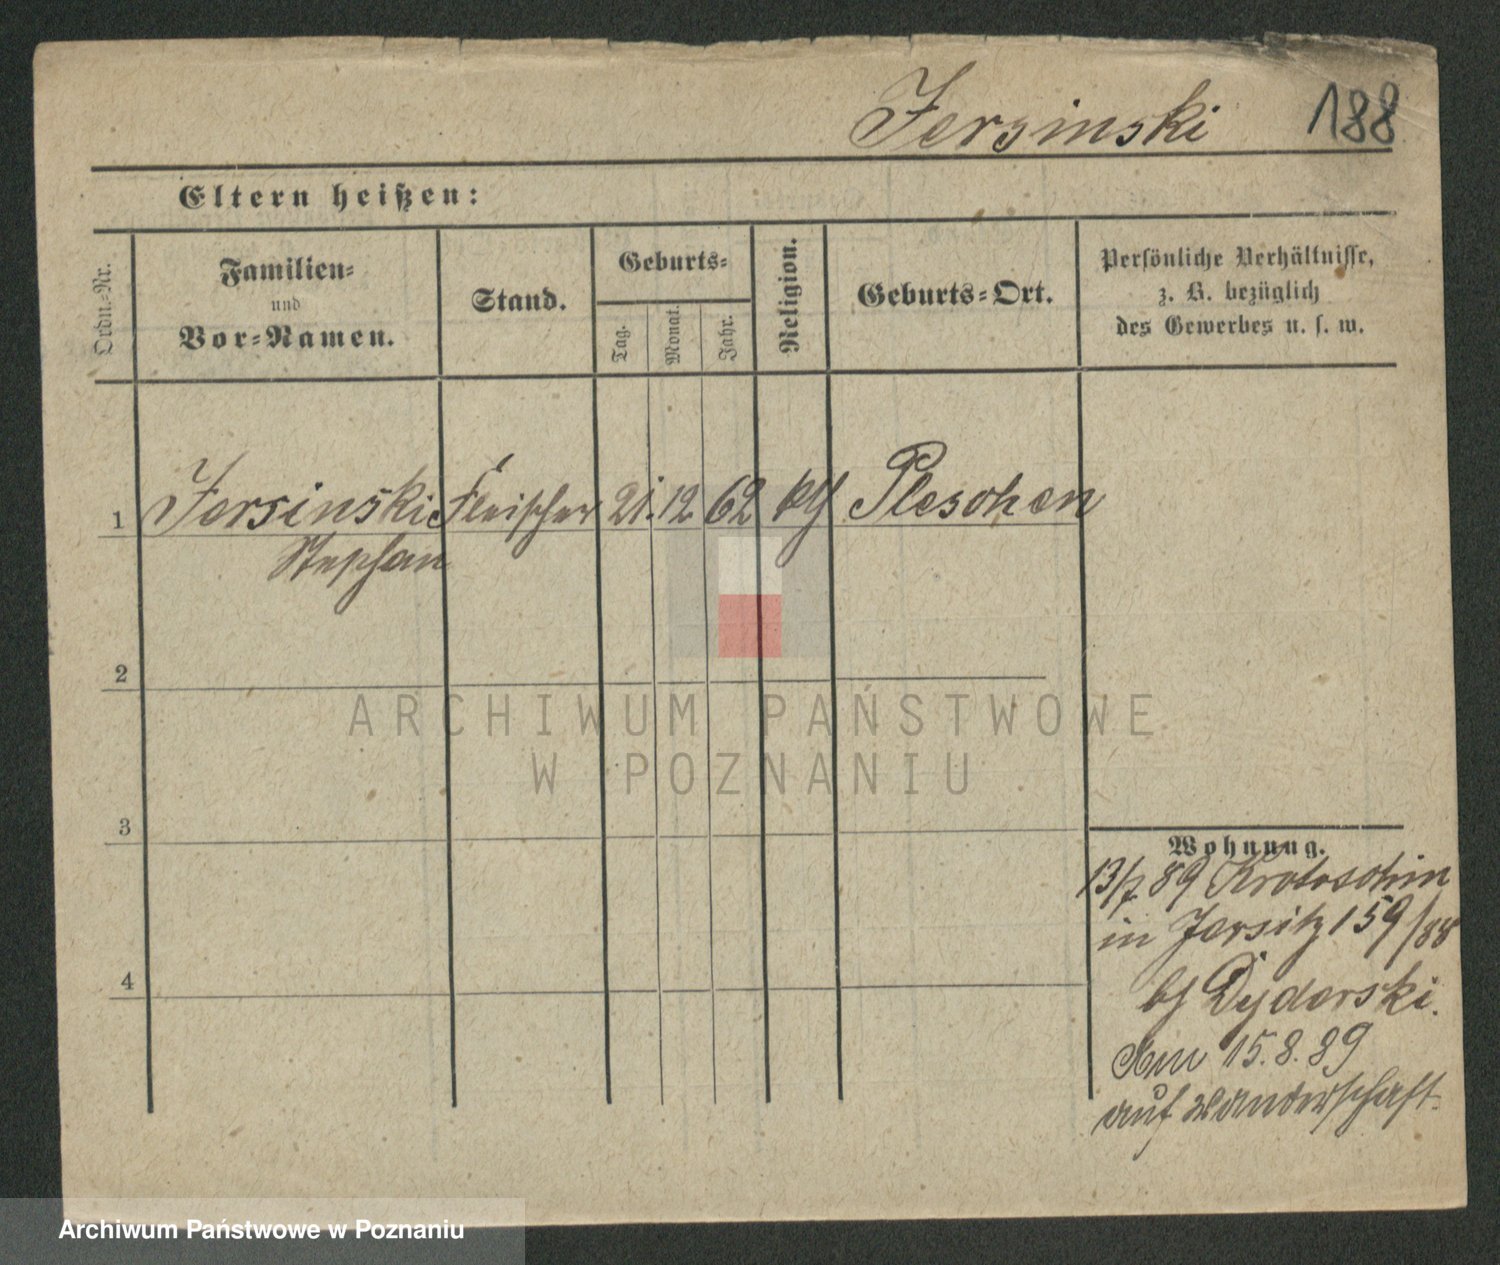 Jersinski 188
Eltern heißen:
Ordn.-Nr.
Familien-
und
Vor-Namen.
Stand.
Geburts-
Tag.
Monat.
Jahr.
Religion.
Geburts-Ort.
Persönliche Verhältnisse,
z. B. bezüglich
des Gewerbes u. s. w.
1 Jersinski Fleischer 21. 12 62 kth Pleschen
Stephan
2
3
4
Wohnung.
13/7 89 Krotoschin
in Jersitz 159/88
bh Dydarski.
Am 15.8.89
auf Wanderschaft.
ARCHIWUM PAŃSTWOWE
W POZNANIU
Archiwum Państwowe w Poznaniu